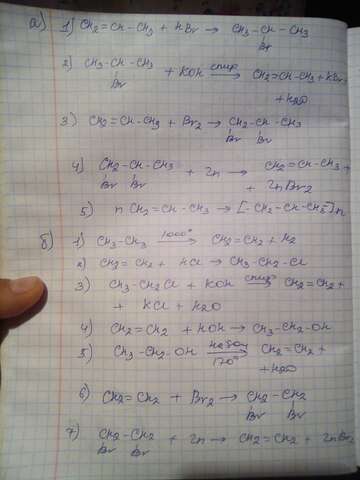 а) 1) CH2=CH-CH3 + HBr → CH3-CH-CH3
Br
2) CH3-CH-CH3 + KOH спирт → CH2=CH-CH3 + KBr
Br
+ H2O
3) CH2=CH-CH3 + Br2 → CH2-CH-CH3
Br Br
4) CH2-CH-CH3 + Zn → CH2=CH-CH3 +
Br Br
+ ZnBr2
5) n CH2=CH-CH3 → [-CH2-CH-CH3-]n
б) 1) CH3-CH3 1000° → CH2=CH2 + H2
2) CH2=CH2 + HCl → CH3-CH2-Cl
3) CH3-CH2Cl + KOH спирт → CH2=CH2 +
+ KCl + H2O
4) CH2=CH2 + HOH → CH3-CH2-OH
5) CH3-CH2-OH H2SO4 → CH2=CH2 +
170°
+ H2O
6) CH2=CH2 + Br2 → CH2-CH2
Br Br
7) CH2-CH2 + Zn → CH2=CH2 + ZnBr2
Br Br